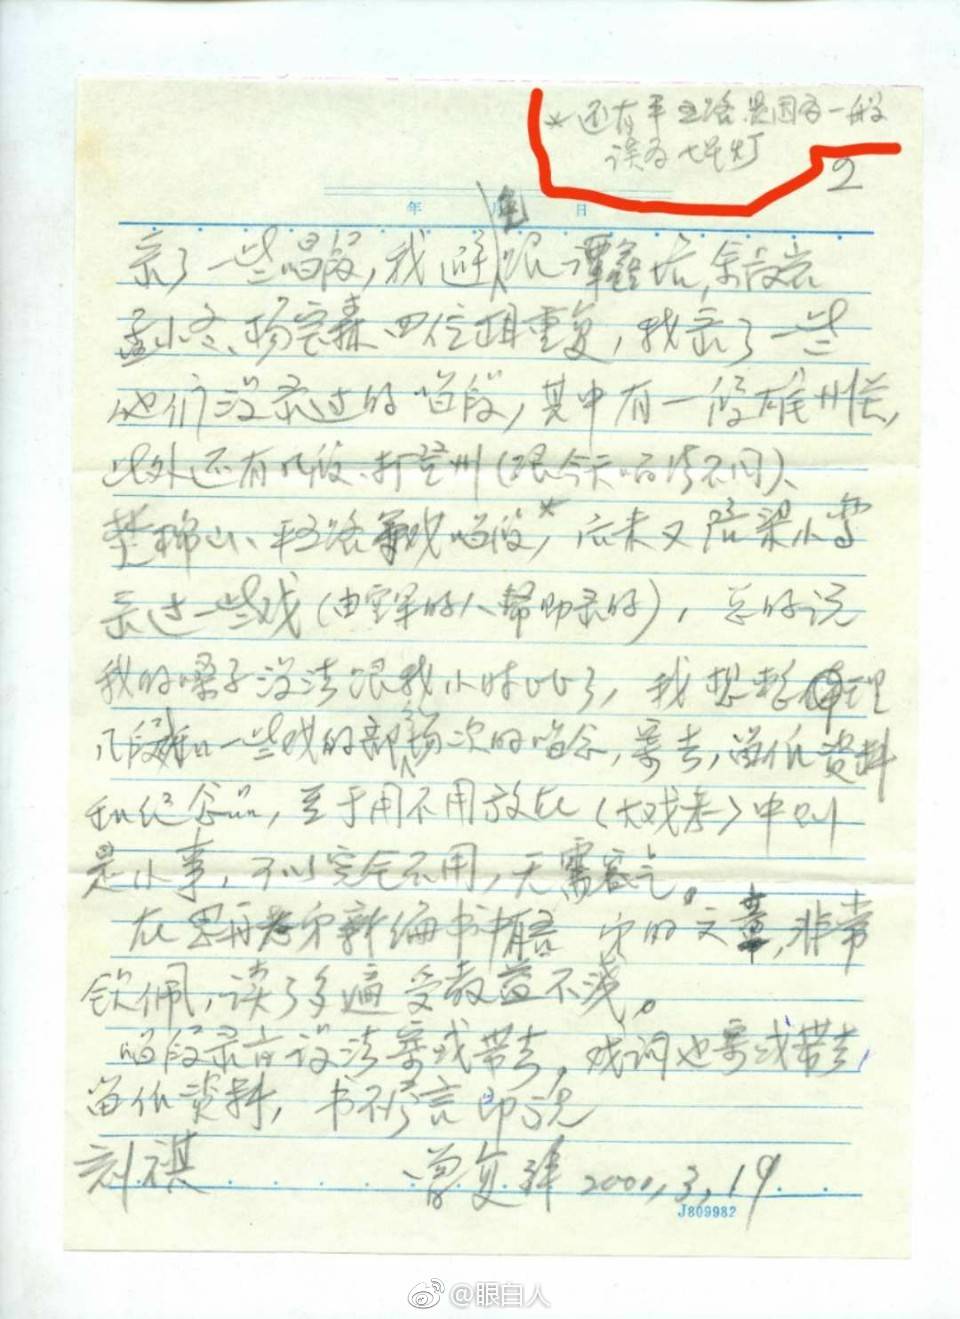 *还有平五路是因为一般
误为七星灯
2
年 月 日
录了一些唱段,我避免跟谭鑫培,余叔岩
孟小冬、杨宝森四位相重复,我录了一些
他们没录过的唱段,其中有一段雄州关,
此外还有几段、打登州(跟今天唱法不同)、
焚棉山、平五路等戏唱段*,后来又陪梁小鸾
录过一些戏(由空军的人帮助录的),总的说
我的嗓子没法跟我小时比了,我想整理
几段和一些戏的部份场次的唱念,寄去,留作资料
和纪念品,至于用不用放在《大戏考》中则
是小事,可以完全不用,无需客气。
在 新编书中有吾 的文章,非常
钦佩,读了多遍受教益不浅。
唱段录音设法寄或带去,戏词也寄或带去
留作资料,书不尽言即颂
刻祺 曾复 2000.3.19
J809982
@眼白人